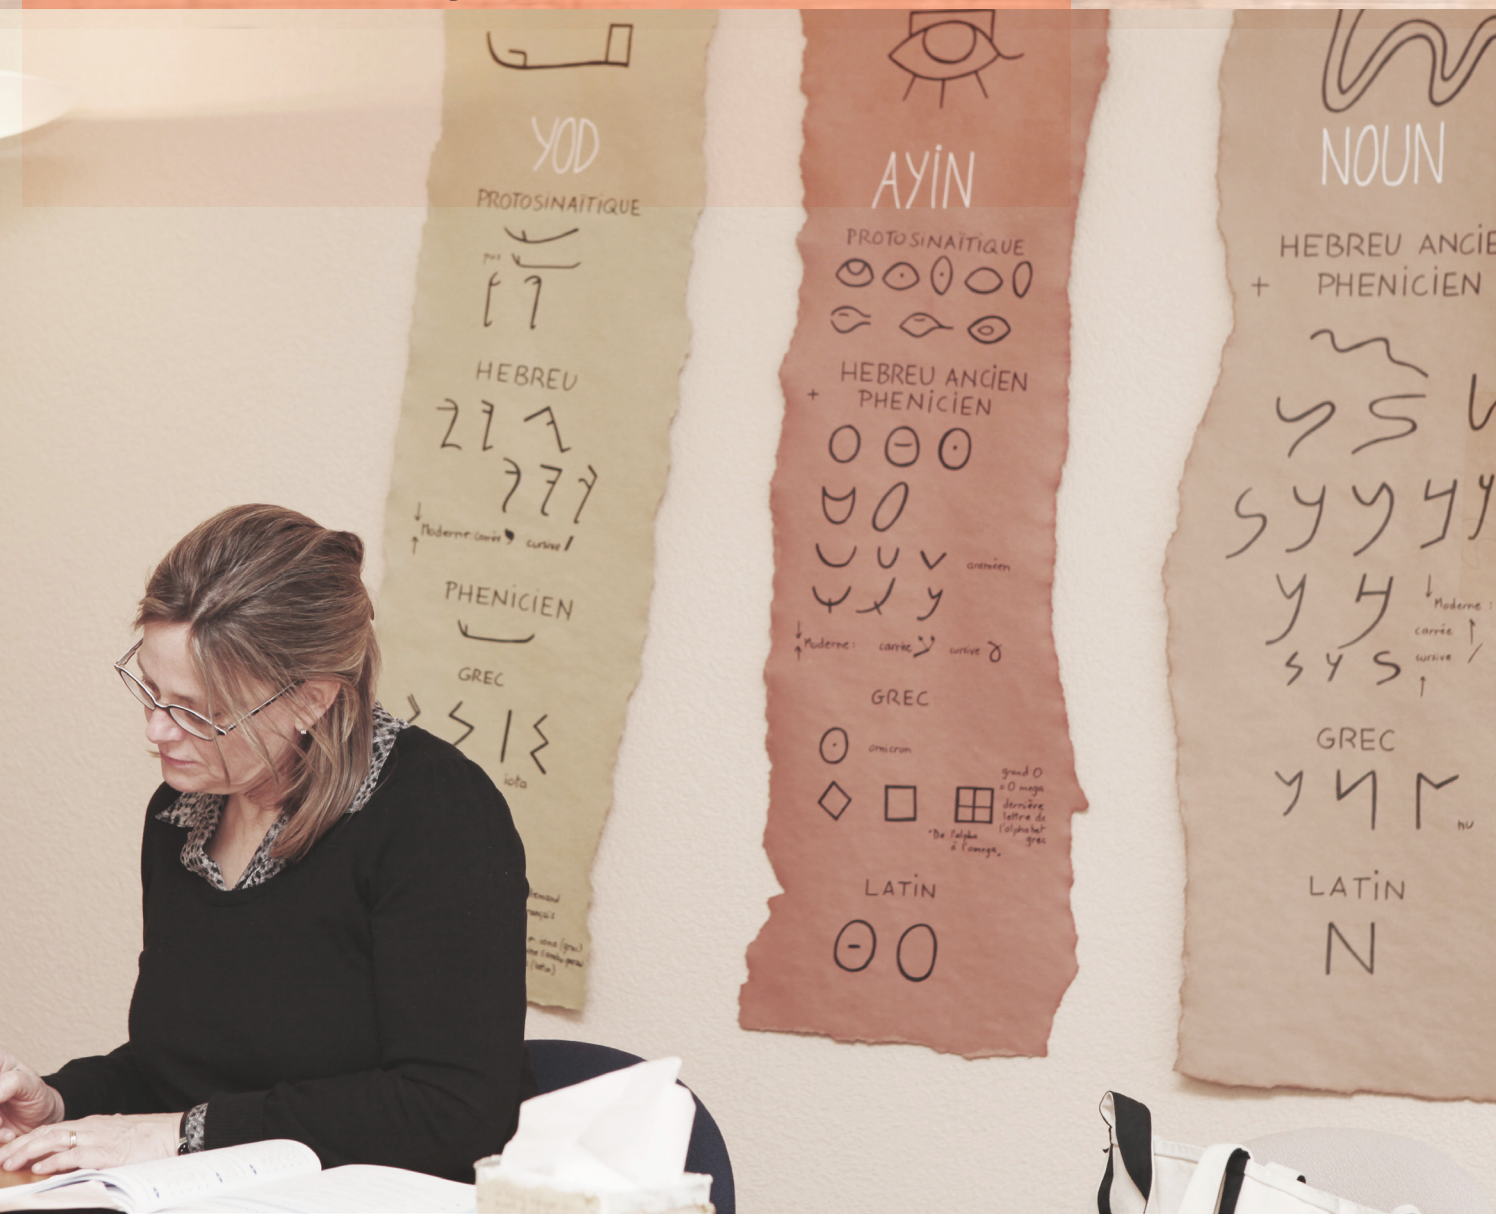 YOD
PROTOSINAÏTIQUE
HEBREU
Moderne: carrée cursive
PHENICIEN
GREC
iota
AYIN
PROTOSINAÏTIQUE
HEBREU ANCIEN
+ PHENICIEN
araméen
Moderne: carrée cursive
GREC
omicron
grand O
= O mega
dernière
lettre de
l'alphabet
grec
"De l'alpha
à l'omega"
LATIN
O O
NOUN
HEBREU ANCIE
+ PHENICIEN
Moderne :
carrée
cursive
GREC
nu
LATIN
N